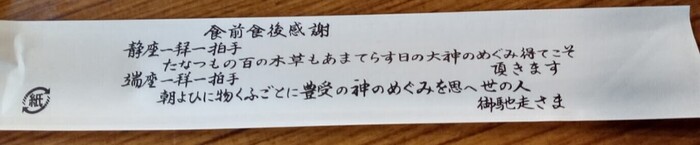 食前食後感謝
静座一拝一拍手
たなつもの百の木草もあまてらす日の大神のめぐみ得てこそ
頂きます
端座一拝一拍手
朝よひに物くふごとに豊受の神のめぐみを思へ世の人
御馳走さま
紙